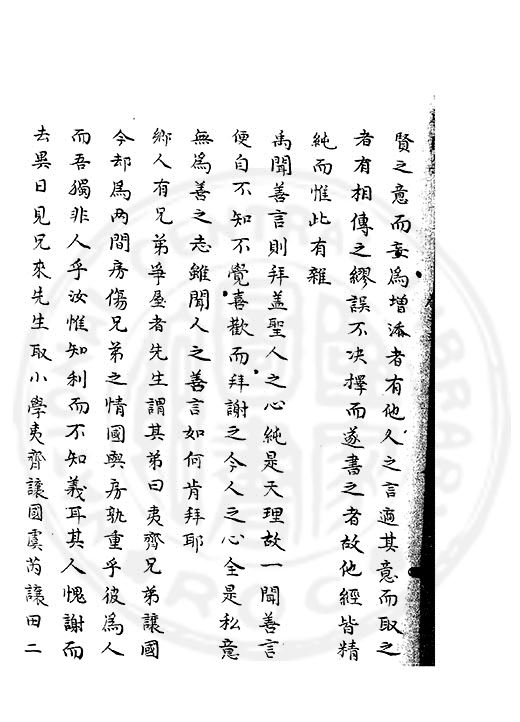 賢之意而妄爲增添者有他人之言適其意而取之
者有相傳之繆誤不决擇而遂書之者故他經皆精
純而惟此有雜
禹聞善言則拜盖聖人之心純是天理故一聞善言
便自不知不覺喜歡而拜謝之今人之心全是私意
無爲善之志雖聞人之善言如何肯拜耶
鄉人有兄弟爭屋者先生謂其弟曰夷齊兄弟讓國
今却爲两間房傷兄弟之情國與房孰重乎彼爲人
而吾獨非人乎汝惟知利而不知義耳其人愧謝而
去異日見兄來先生取小學夷齊讓國虞芮讓田二